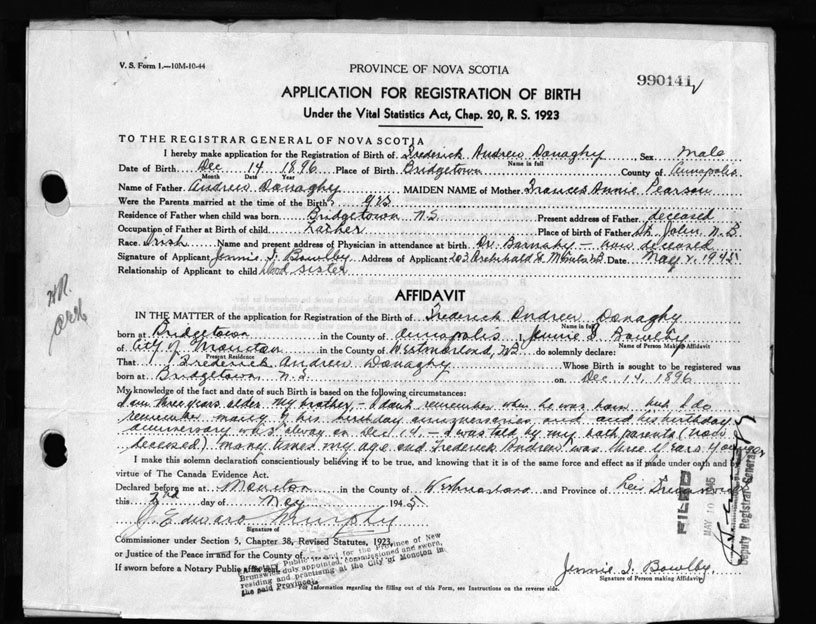 V. S. Form 1.—10M-10-44
PROVINCE OF NOVA SCOTIA
990141
APPLICATION FOR REGISTRATION OF BIRTH
Under the Vital Statistics Act, Chap. 20, R. S. 1923
TO THE REGISTRAR GENERAL OF NOVA SCOTIA
I hereby make application for the Registration of Birth of Frederick Andrew Donaghy Sex Male
Name in full
Date of Birth Dec 14 1896 Place of Birth Bridgetown County of Annapolis
Month Date Year
Name of Father Andrew Donaghy MAIDEN NAME of Mother Frances Annie Pearson
Were the Parents married at the time of the Birth? yes
Residence of Father when child was born Bridgetown N.S. Present address of Father deceased
Occupation of Father at Birth of child Place of birth of Father St. John N.B.
Race Irish Name and present address of Physician in attendance at birth Dr. Barnaby - now deceased
Signature of Applicant Jennie I. Bowlby Address of Applicant 203 Archibald St Moncton N.B. Date May 2, 1945
Relationship of Applicant to child sister
AFFIDAVIT
IN THE MATTER of the application for Registration of the Birth of Frederick Andrew Donaghy
Name in full
born at Bridgetown in the County of Annapolis I, Jennie I. Bowlby
Name of Person Making Affidavit
of City of Moncton in the County of Westmorland, N.B. do solemnly declare:
Present Residence
That Frederick Andrew Donaghy Whose Birth is sought to be registered was
born at Bridgetown N.S. on Dec 14, 1896
My knowledge of the fact and date of such Birth is based on the following circumstances:
I am three years older my brother, - I don't remember when he was born but I do
remember many of his birthday anniversaries, and his birthday
anniversary was always on Dec 14 - I was told by my both parents (now
deceased) many times my age and Frederick Andrew was three years younger
I make this solemn declaration conscientiously believing it to be true, and knowing that it is of the same force and effect as if made under oath and by
virtue of The Canada Evidence Act.
Declared before me at Moncton in the County of Westmorland and Province of New Brunswick
this 2nd day of May 1945
J. Edward Murphy
Signature of
Commissioner under Section 5, Chapter 38, Revised Statutes, 1923,
or Justice of the Peace in and for the County of
If sworn before a Notary Public affix
Notary Public in and for the Province of New
Brunswick, duly appointed, commissioned and sworn,
residing and practising at the City of Moncton in
the said Province.
FILED
MAY 10 1945
Deputy Registrar General
Jennie I. Bowlby
Signature of Person making Affidavit
For Information regarding the filling out of this Form, see Instructions on the reverse side.